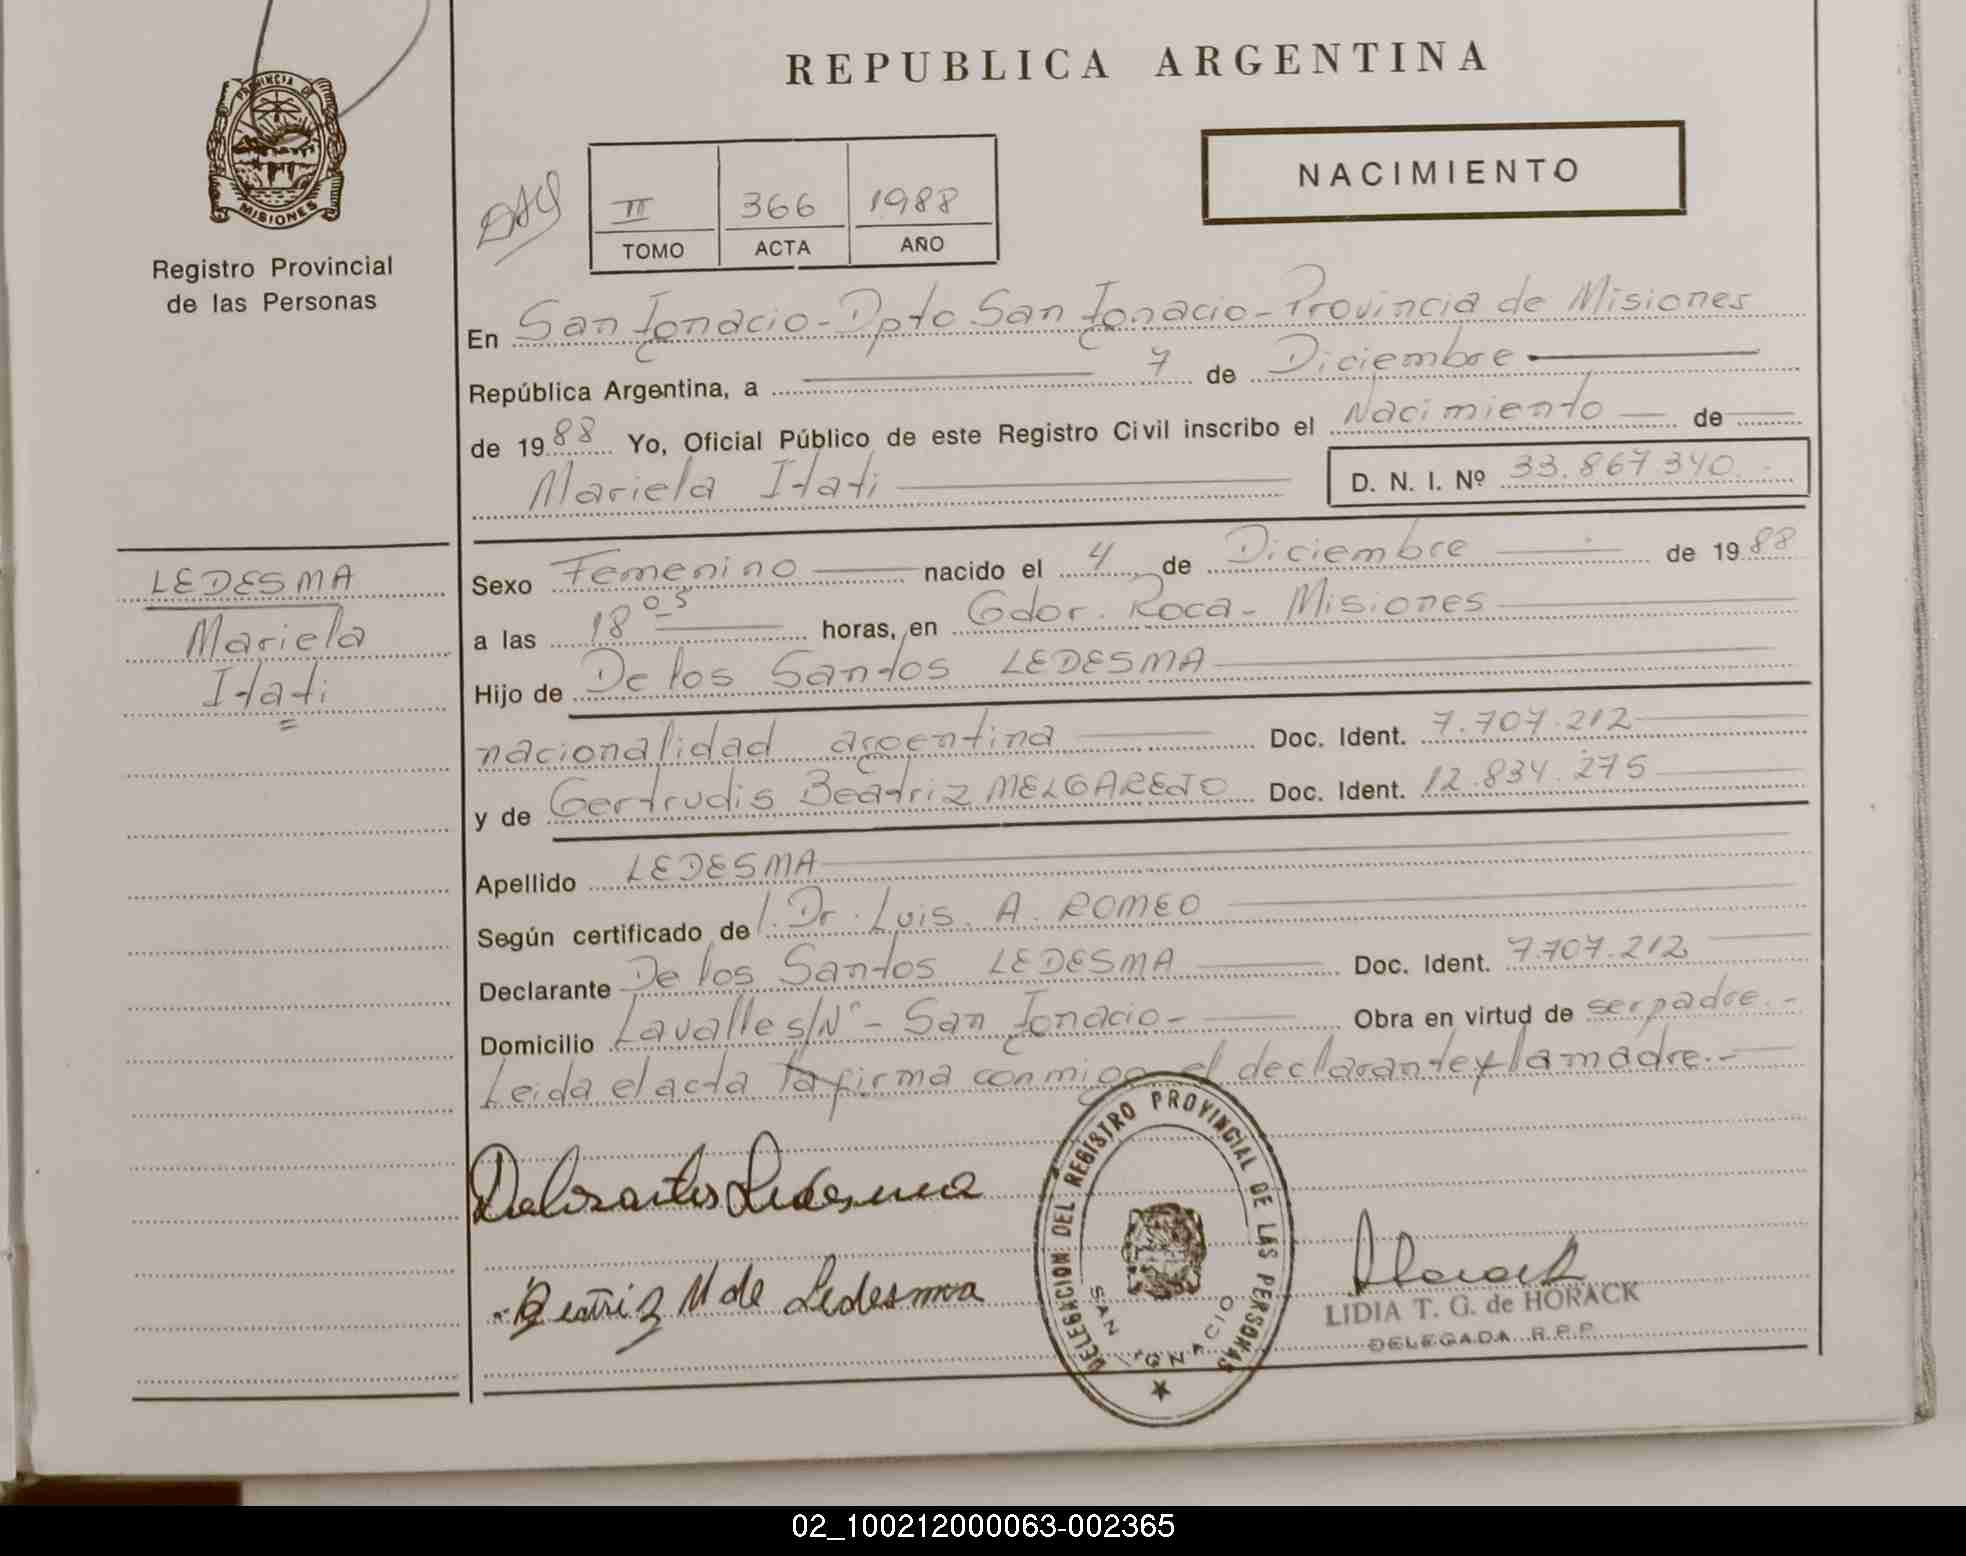 REPUBLICA ARGENTINA
PROVINCIA DE
MISIONES
Registro Provincial
de las Personas
NACIMIENTO
III 366 1988
TOMO ACTA AÑO
En San Ignacio - Dpto San Ignacio - Provincia de Misiones
República Argentina, a 7 de Diciembre
de 1988 Yo, Oficial Público de este Registro Civil inscribo el Nacimiento de
Mariela Itati D. N. I. Nº 33.867.340
LEDESMA
Mariela
Itati
Sexo Femenino nacido el 4 de Diciembre de 1988
a las 18 05 horas, en Gdor. Roca - Misiones
Hijo de De los Santos LEDESMA
nacionalidad argentina Doc. Ident. 7.707.212
y de Gertrudis Beatriz MELGAREJO Doc. Ident. 12.834.275
Apellido LEDESMA
Según certificado de Dr. Luis. A. ROMEO
Declarante De los Santos LEDESMA Doc. Ident. 7.707.212
Domicilio Lavalle s/Nº - San Ignacio - Obra en virtud de ser padre.-
Leida el acta la firma conmigo el declarante y la madre.-
Delosantos Ledesma
Beatriz M de Ledesma
DELEGACION DEL REGISTRO PROVINCIAL DE LAS PERSONAS
SAN IGNACIO
LIDIA T. G. de HORACK
DELEGADA R.P.P.
02_100212000063-002365